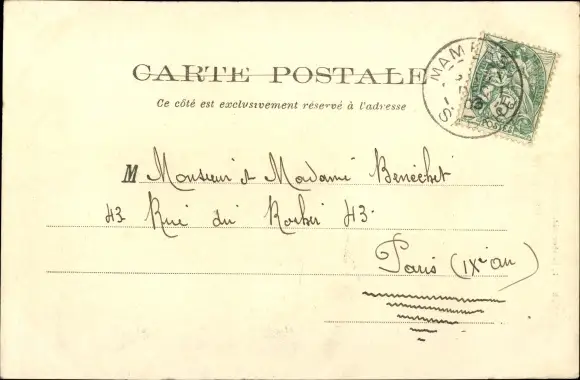 CARTE POSTALE
Ce côté est exclusivement réservé à l'adresse
M Monsieur et Madame Benéchet
43 Rue du Rocher 43.
Paris (IXe arr)